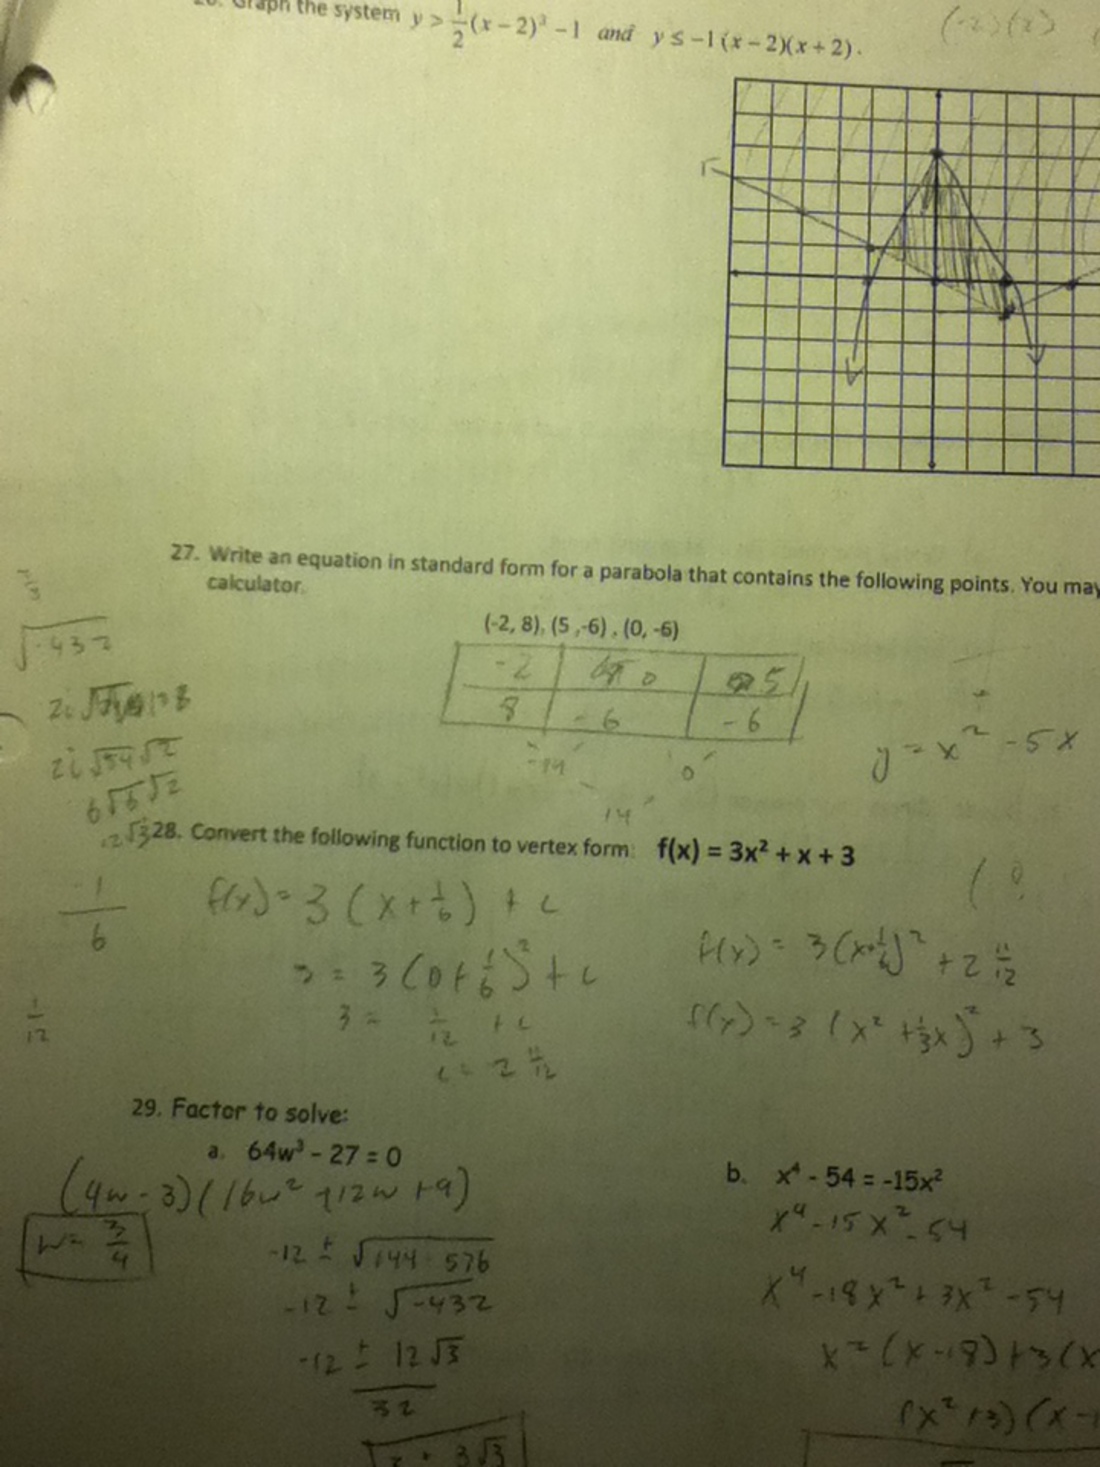 Graph the system y > 1/2 (x − 2)² − 1 and y ≤ −1(x − 2)(x + 2).
(-2)(2)
27. Write an equation in standard form for a parabola that contains the following points. You may
calculator.
(-2, 8), (5 ,-6) , (0, -6)
√-432
-2 0 5
8 -6 -6
-14 0
14
y = x² - 5x
2i√54√2
6√6√2
28. Convert the following function to vertex form: f(x) = 3x² + x + 3
1/6
f(x) = 3 (x + 1/6) + c
3 = 3 (0 + 1/6)² + c
3 = 1/12 + c
c = 2 11/12
1/12
f(x) = 3 (x + 1/6)² + 2 11/12
f(x) = 3 (x² + 1/3x)² + 3
29. Factor to solve:
a. 64w³ – 27 = 0
(4w - 3)(16w² + 12w + 9)
w = 3/4
-12 ± √144 - 576
-12 ± √-432
-12 ± 12√3
32
3√3
b. x⁴ - 54 = -15x²
x⁴ - 15x² - 54
x⁴ - 18x² + 3x² - 54
x² (x - 18) + 3 (x
(x² + 3) (x -